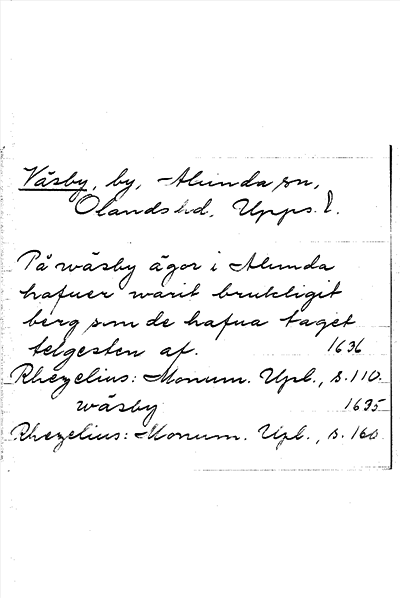 Väsby, by, Alunda sn,
Olands hd, Upps. l.
På wäsby ägor i Alunda
hafuer warit brukligit
berg som de hafua taget
telgesten af. 1636
Rhezelius: Monum. Upl., s. 110.
wäsby 1635
Rhezelius: Monum. Upl., s. 160